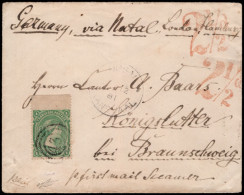 Germany, via Natal, London Hamburg
2 1/2
Herrn Pastor A. Baats
2 1/2
Königslutter
bei Braunschweig
per first mail Steamer